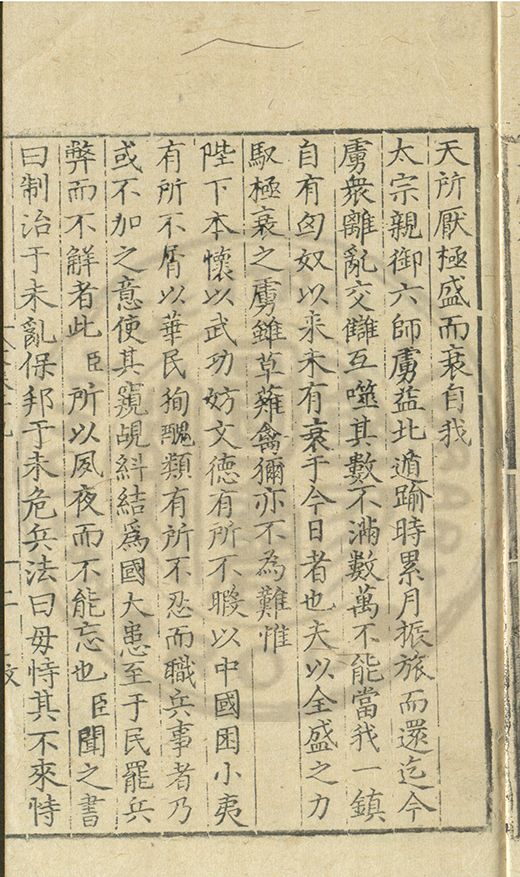 天所厭極盛而衰自我
太宗親御六師虜益北遁踰時累月振旅而還迄今
虜衆離亂交讎互噬其數不滿數萬不能當我一鎮
自有匈奴以来未有衰于今日者也夫以全盛之力
馭極衰之虜雖草薙禽獮亦不為難惟
陛下本懷以武功妨文德有所不暇以中國困小夷
有所不屑以華民殉醜類有所不忍而職兵事者乃
或不加之意使其窺覘糾結爲國大患至于民罷兵
弊而不解者此臣所以夙夜而不能忘也臣聞之書
曰制治于未亂保邦于未危兵法曰毋恃其不來恃